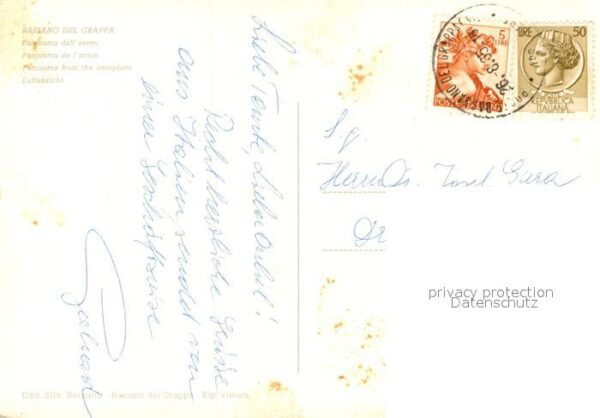 BASSANO DEL GRAPPA
Panorama dall'aereo
Panorama de l'avion
Panorama from the aeroplane
Luftansicht
Liebe Tante, Lieber Onkel!
Recht herzliche Grüsse
aus Italien sendet von
einer Geschäftsreise
Gerhard
5
LIRE
LIRE 50
POSTE
REPUBBLICA
ITALIANA
BASSANO DEL GRAPPA
S.g.
Herrn Dr. Josef
privacy protection
Datenschutz
Ediz. Silv. Bernardi - Bassano del Grappa Rip. vietata